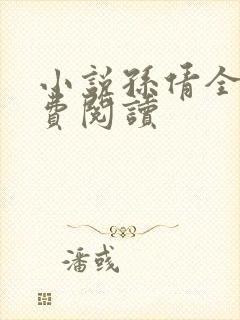 小說孫倩全
費閱讀
潘彧